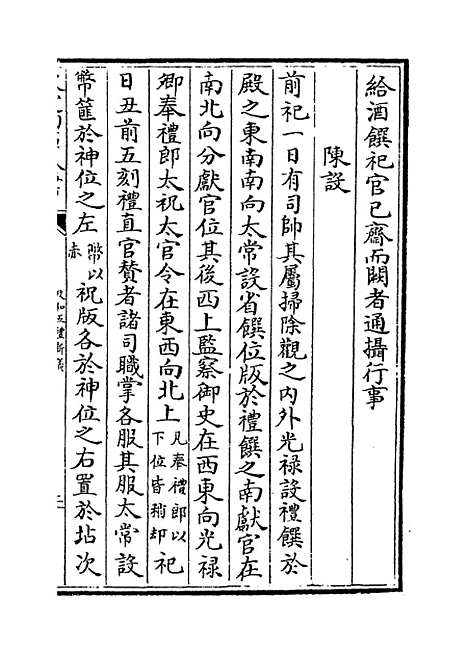 給酒饌祀官已齋而闕者通攝行事
陳設
前祀一日有司帥其屬掃除觀之内外光禄設禮饌於
殿之東南南向太常設省饌位版於禮饌之南獻官在
南北向分獻官位其後西上監察御史在西東向光禄
卿奉禮郎太祝太官令在東西向北上凡奉禮郎以下位皆稍却祀
日丑前五刻禮直官賛者諸司職掌各服其服太常設
幣篚於神位之左幣以赤祝版各於神位之右置於坫次
政和五禮新儀